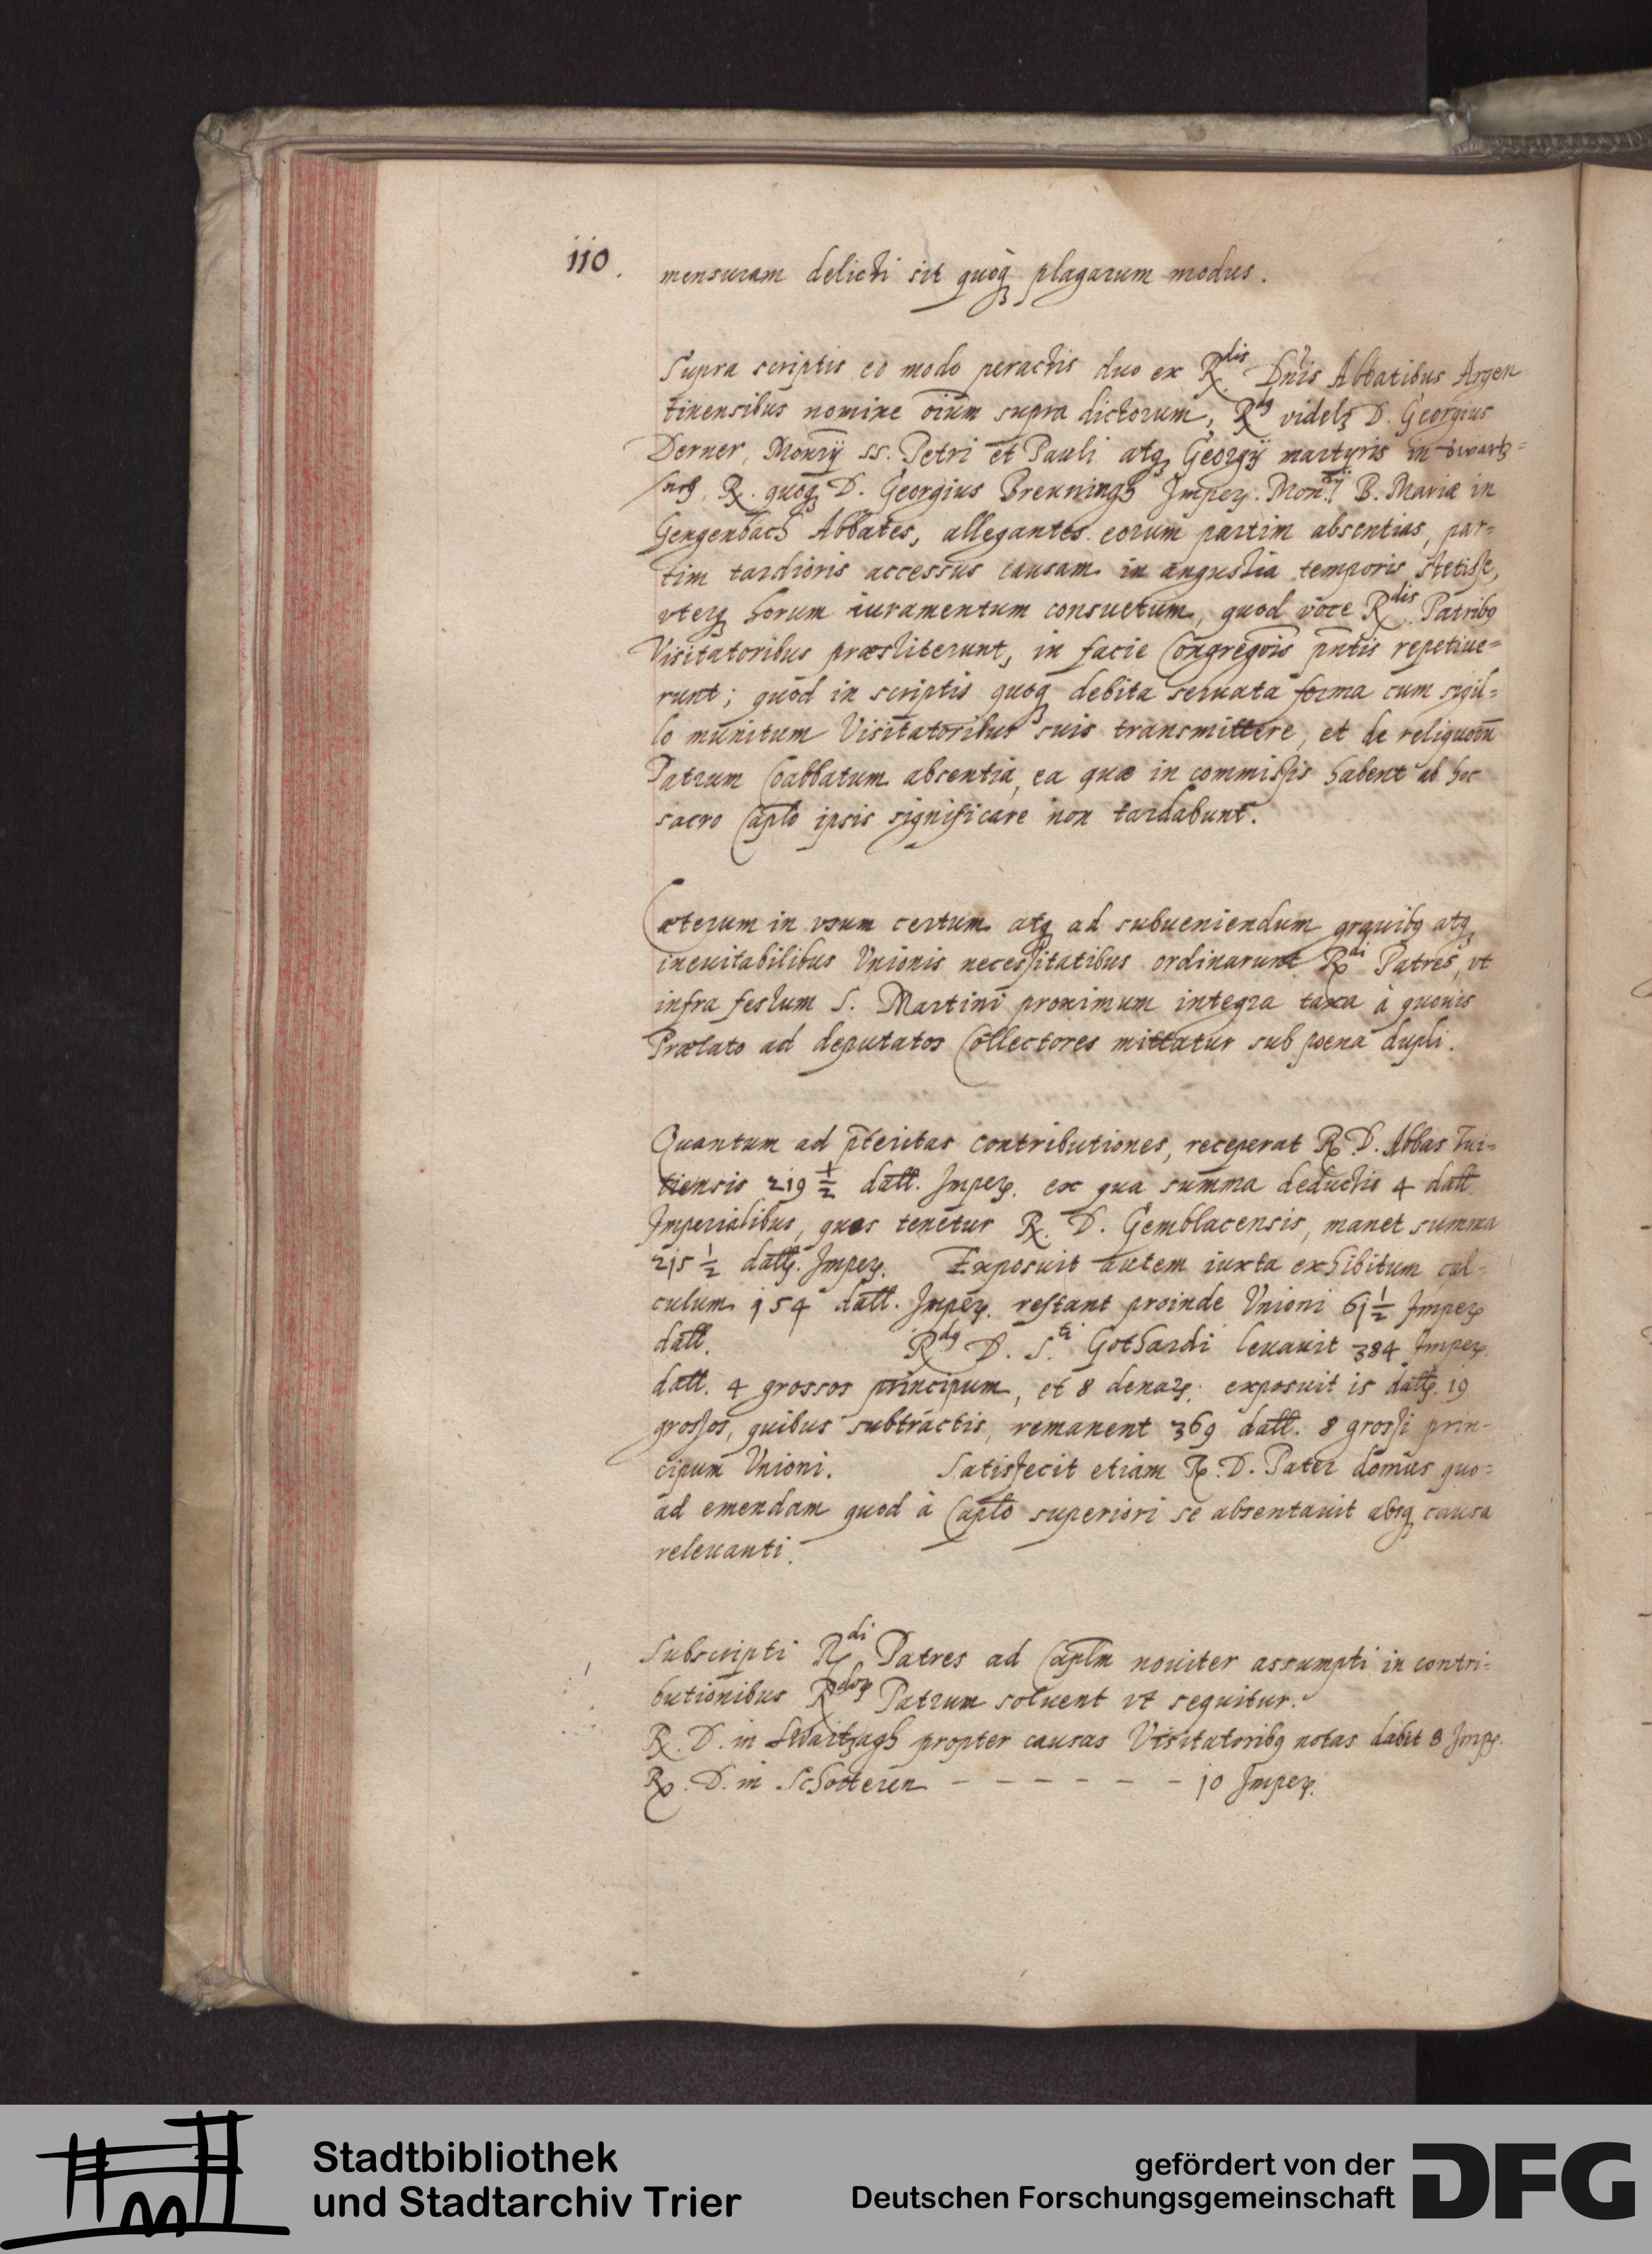 110.
mensuram delicti sit quoq₃ plagarum modus.
Supra scriptis eo modo peractis duo ex R.dis Dn̄is Abbatibus Argen
tinensibus nomine oīum supra dictorum, R.dꝰ videlꝫ D. Georgius
Derner, Monrÿ ss. Petri et Pauli atqꝫ Georgÿ martyris in
R. quoqꝫ D. Georgius Breunningh Imper. Monrÿ B. Mariæ in
Gengenbach Abbates, allegantes eorum partim absentias, par=
tim tardioris accessus causam in angustia temporis stetisse,
vterqꝫ horum iuramentum consuetum, quod voce R.dis Patribꝰ
Visitatoribus præstiterunt, in facie Congregōis pn̄tis repetiue=
runt; quod in scriptis quoqꝫ debita seruata forma cum sigil=
lo munitum Visitatoribus suis transmittere, et de reliquorū
Patrum Coabbatum absentia, ea quæ in commissis habent ab hoc
sacro Cap̄lo ipsis significare non tardabunt.
Cæterum in vsum certum atqꝫ ad subueniendum grauibꝰ atqꝫ
ineuitabilibus Vnionis necessitatibus ordinarunt R.di Patres, vt
infra festum S. Martini proximum integra taxa à quouis
Prælato ad deputatos Collectores mittatur sub poena dupli.
Quantum ad p̄teritas contributiones, receperat R. D. Abbas Tui=
tiensis 219 ½ dall. Imper. ex qua summa deductis 4 dall
Imperialibus, quos tenetur R. D. Gemblacensis, manet summa
215 ½ dall. Imper. Exposuit autem iuxta exhibitum cal=
culum 154 dall. Imper. restant proinde Vnioni 61 ½ Imper
dall. R.dꝰ D. S.ti Gothardi leuauit 384 Imper.
dall. 4 grossos principum, et 8 denar. exposuit is dall. 19
grossos, quibus subtractis, remanent 369 dall. 8 grossi prin-
cipum Vnioni. Satisfecit etiam R. D. Pater domus quo=
ad emendam quod à Cap̄lo superiori se absentauit absqꝫ causa
releuanti.
Subscripti R.di Patres ad Cap̄lm nouiter assumpti in contri=
butionibus R.dorꝝ Patrum soluent vt sequitur.
R. D. in Swartzagh propter causas Visitatoribꝰ notas dabit 8 Imp.
R. D. in Schotteren - - - - - - - 10 Imper.
Stadtbibliothek
und Stadtarchiv Trier
gefördert von der
Deutschen Forschungsgemeinschaft
DFG